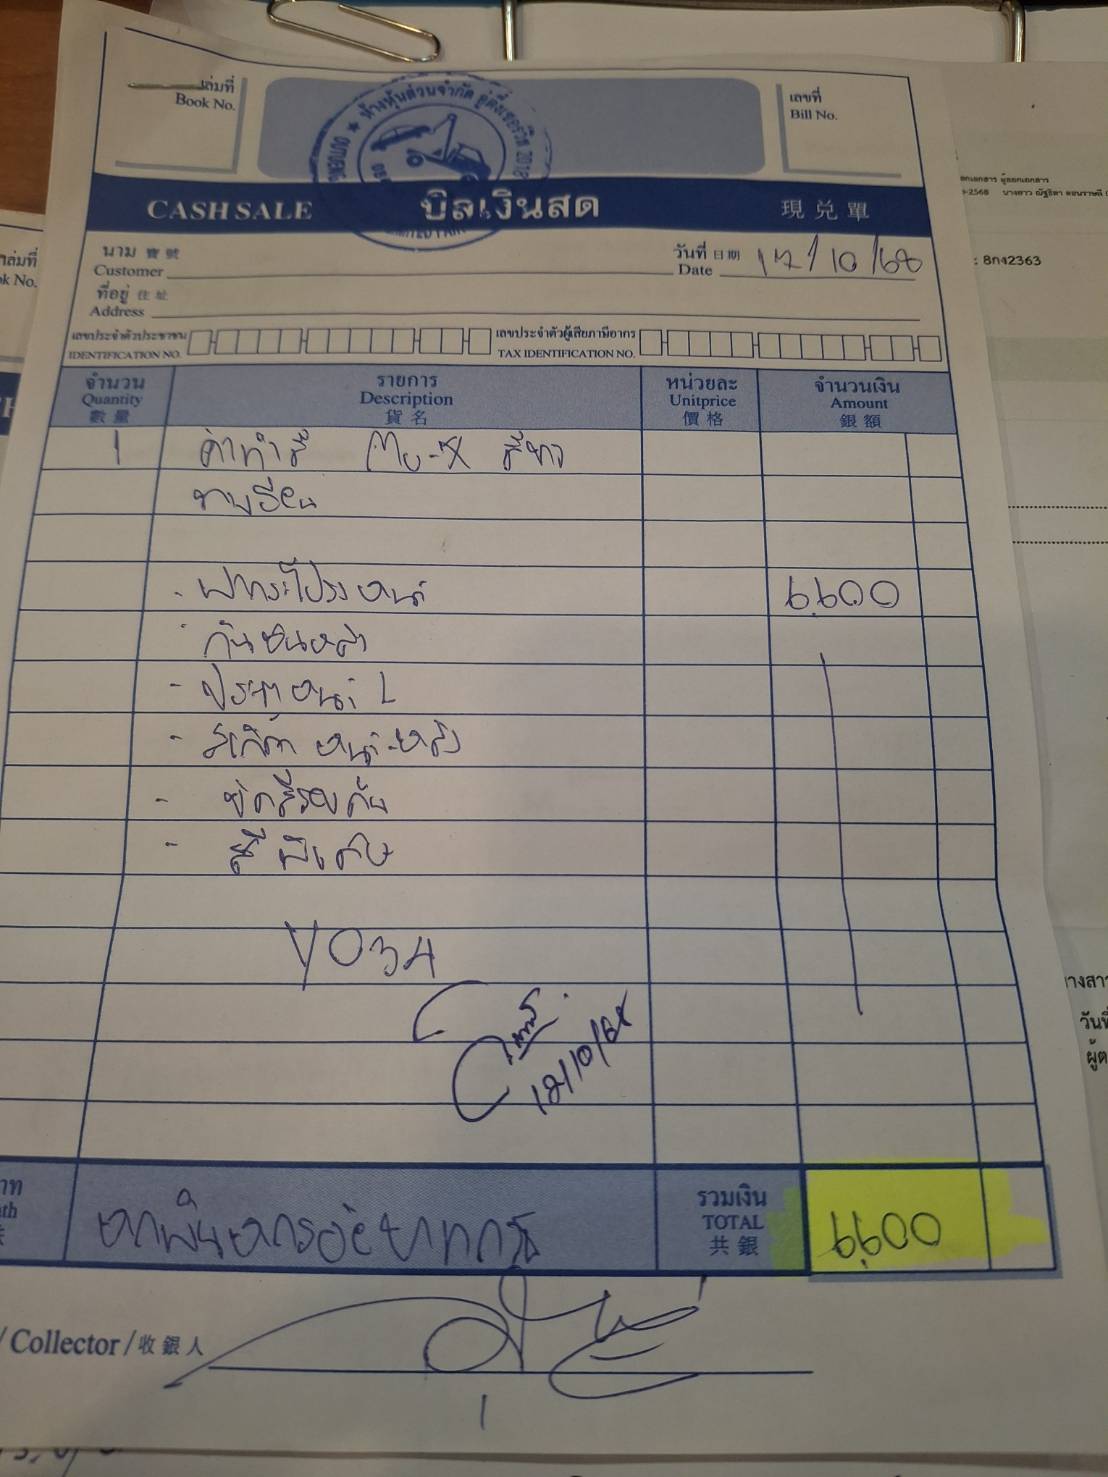 เล่มที่
Book No.
เลขที่
Bill No.
ห้างหุ้นส่วนจำกัด
2018
CASH SALE บิลเงินสด 現兑單
นาม 寶號
Customer
วันที่ 日期
Date 12/10/68
ที่อยู่ 住址
Address
เลขประจำตัวประชาชน
IDENTIFICATION NO.
เลขประจำตัวผู้เสียภาษีอากร
TAX IDENTIFICATION NO.
จำนวน รายการ หน่วยละ จำนวนเงิน
Quantity Description Unitprice Amount
數量 貨名 價格 銀額
1 ค่าทำสี Mu-X สีขาว
- ฝากระโปรงหน้า 6,600
กันชนหลัง
- ประตูหน้า L
- หน้า-หลัง
- ขัดสีรอบคัน
- สีพิเศษ
12/10/68
หกพันหกร้อยบาทถ้วน
รวมเงิน
TOTAL
共銀
6,600
/Collector/收銀人
ผู้ออกเอกสาร
-2568
: 8กง2363
เล่มที่
ok No.
างสาว
วันที่